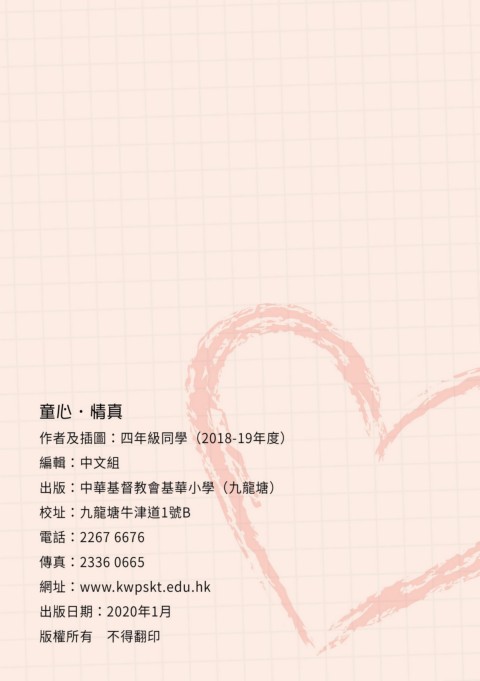 童心·情真
作者及插圖：四年級同學（2018-19年度）
編輯：中文組
出版：中華基督教會基華小學（九龍塘）
校址：九龍塘牛津道1號B
電話：2267 6676
傳真：2336 0665
網址：www.kwpskt.edu.hk
出版日期：2020年1月
版權所有　不得翻印